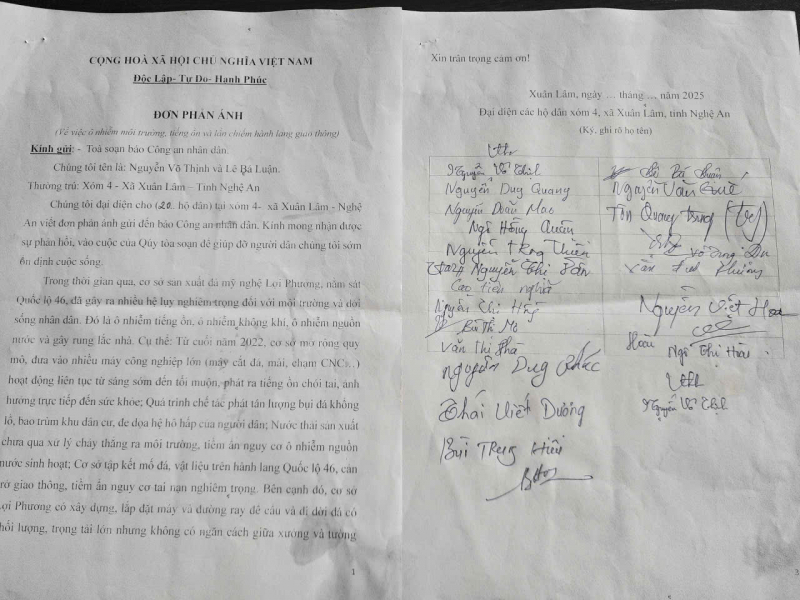 CỘNG HOÀ XÃ HỘI CHỦ NGHĨA VIỆT NAM
Độc Lập- Tự Do- Hạnh Phúc
ĐƠN PHẢN ÁNH
(Về việc ô nhiễm môi trường, tiếng ồn và lấn chiếm hành lang giao thông)
Kính gửi: - Toà soạn báo Công an nhân dân.
Chúng tôi tên là: Nguyễn Võ Thịnh và Lê Bá Luận.
Thường trú: Xóm 4 - Xã Xuân Lâm – Tỉnh Nghệ An
Chúng tôi đại diện cho (20 hộ dân) tại xóm 4- xã Xuân Lâm - Nghệ
An viết đơn phản ánh gửi đến báo Công an nhân dân. Kính mong nhận được
sự phản hồi, vào cuộc của Qúy tòa soạn để giúp đỡ người dân chúng tôi sớm
ổn định cuộc sống.
Trong thời gian qua, cơ sở sản xuất đá mỹ nghệ Lợi Phương, nằm sát
Quốc lộ 46, đã gây ra nhiều hệ lụy nghiêm trọng đối với môi trường và đời
sống nhân dân. Đó là ô nhiễm tiếng ồn, ô nhiễm không khí, ô nhiễm nguồn
nước và gây rung lắc nhà. Cụ thể: Từ cuối năm 2022, cơ sở mở rộng quy
mô, đưa vào nhiều máy công nghiệp lớn (máy cắt đá, mài, chạm CNC...)
hoạt động liên tục từ sáng sớm đến tối muộn, phát ra tiếng ồn chói tai, ảnh
hưởng trực tiếp đến sức khỏe; Quá trình chế tác phát tán lượng bụi đá khổng
lồ, bao trùm khu dân cư, đe dọa hệ hô hấp của người dân; Nước thải sản xuất
chưa qua xử lý chảy thẳng ra môi trường, tiềm ẩn nguy cơ ô nhiễm nguồn
nước sinh hoạt; Cơ sở tập kết mồ đá, vật liệu trên hành lang Quốc lộ 46, cản
trở giao thông, tiềm ẩn nguy cơ tai nạn nghiêm trọng. Bên cạnh đó, cơ sở
Lợi Phương có xây dựng, lắp đặt máy và đường ray để cẩu và di dời đá có
khối lượng, trọng tải lớn nhưng không có ngăn cách giữa xưởng và tường
1
Xin trân trọng cảm ơn!
Xuân Lâm, ngày ... tháng ... năm 2025
Đại diện các hộ dân xóm 4, xã Xuân Lâm, tỉnh Nghệ An
(Ký, ghi rõ họ tên)
Nguyễn Võ Thịnh
Lê Bá Luận
Nguyễn Duy Quang
Nguyễn Văn
Nguyễn Doãn Mao
Tôn Quang Trung
Ngô Hồng Quân
Nguyễn Trọng Thiên
Võ Dung
Nguyễn Thị
Cao tiến nghĩa
Nguyễn Thị Hồng
Nguyễn Viết Hoa
Bùi Thị Mơ
Văn Thị Hà
Hoàn
Ngô Thị Hoài
Nguyễn Duy
Nguyễn Võ Thịnh
Thái Viết Dương
Bùi Trọng Hiếu
3